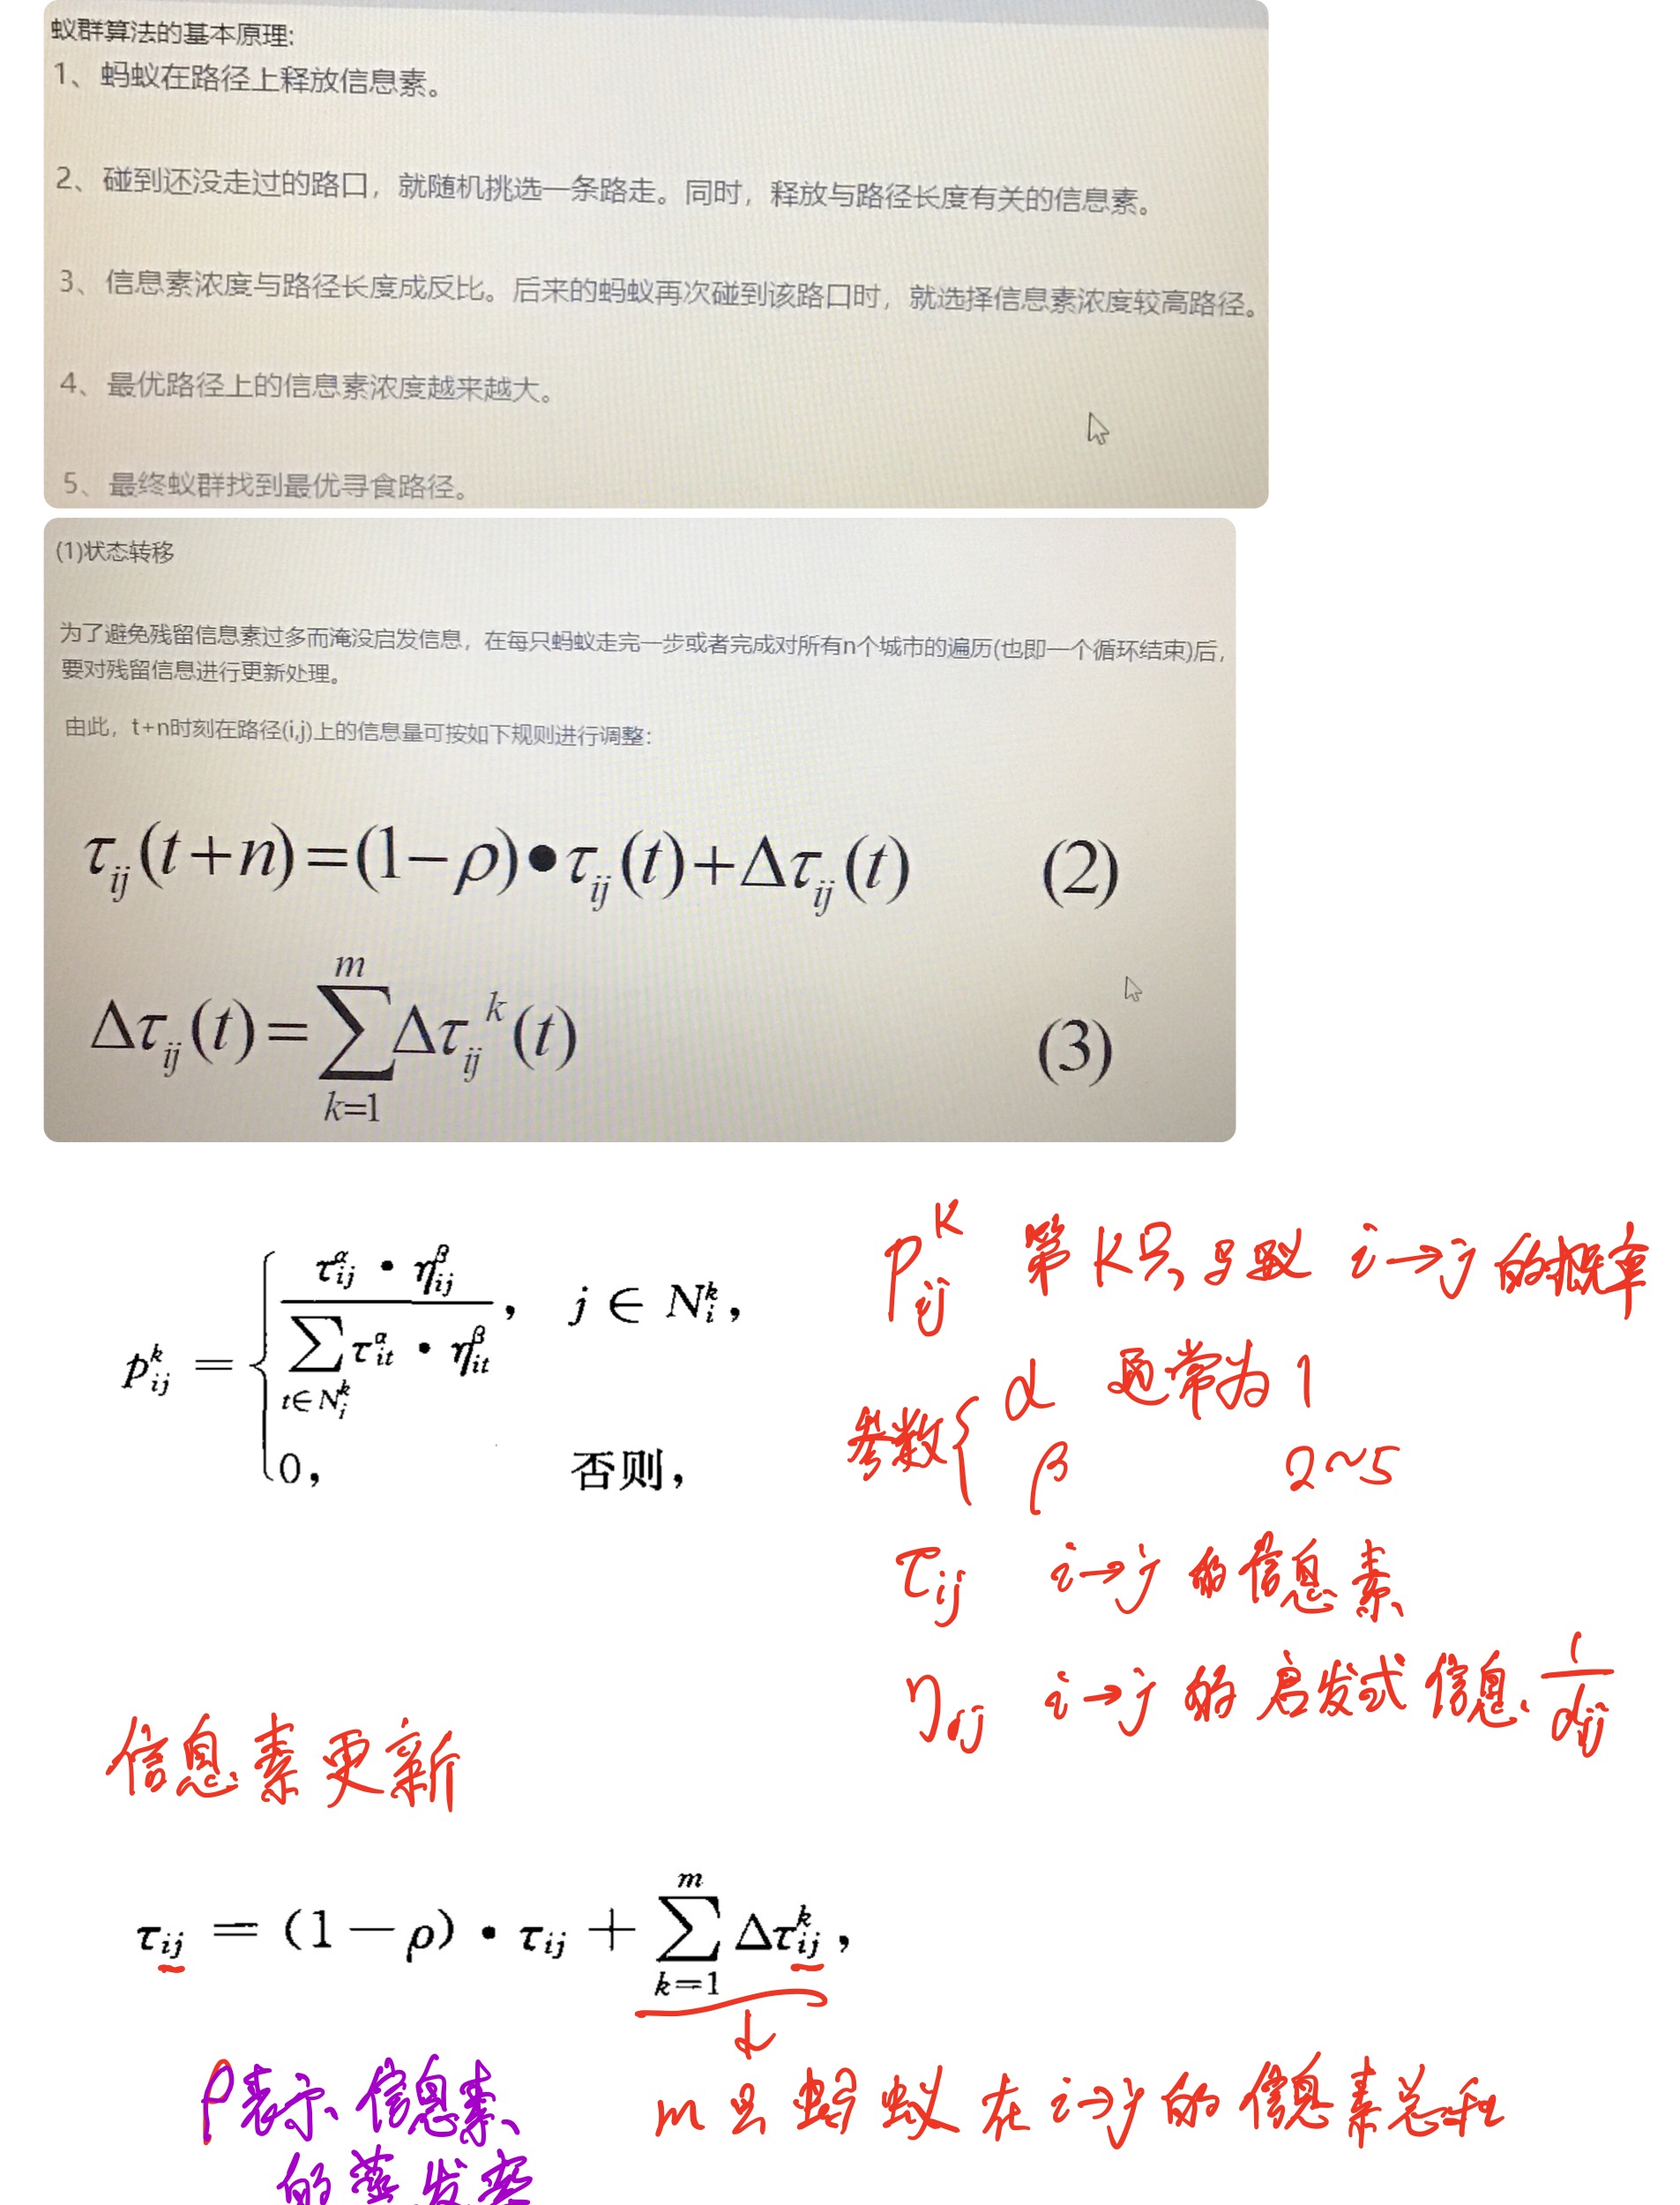 蚁群算法的基本原理:
1、蚂蚁在路径上释放信息素。
2、碰到还没走过的路口，就随机挑选一条路走。同时，释放与路径长度有关的信息素。
3、信息素浓度与路径长度成反比。后来的蚂蚁再次碰到该路口时，就选择信息素浓度较高路径。
4、最优路径上的信息素浓度越来越大。
5、最终蚁群找到最优寻食路径。
(1)状态转移
为了避免残留信息素过多而淹没启发信息，在每只蚂蚁走完一步或者完成对所有n个城市的遍历(也即一个循环结束)后，
要对残留信息进行更新处理。
由此，t+n时刻在路径(i,j)上的信息量可按如下规则进行调整：
τ_ij(t+n)=(1−ρ)•τ_ij(t)+Δτ_ij(t) (2)
Δτ_ij(t)=∑_{k=1}^{m}Δτ_ij^k(t) (3)
p_ij^k = { τ_ij^α · η_ij^β / ∑_{t∈N_i^k} τ_it^α · η_it^β， j ∈ N_i^k，
0， 否则，
P_ij^K 第K只蚂蚁 i→j 的概率
参数{ α 通常为1
β 2~5
τ_ij i→j 的信息素
η_ij i→j 的启发式信息 1/d_ij
信息素更新
τ_ij = (1−ρ) · τ_ij + ∑_{k=1}^{m} Δτ_ij^k，
ρ表示信息素
的蒸发率
m只蚂蚁在i→j的信息素总和